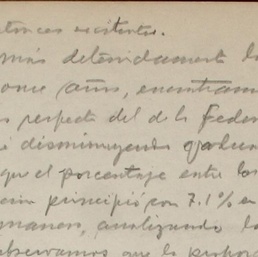 entonces existentes.
más detenidamente l
once años, encontram
respecto del de la Feder
disminuyendo gradu
que el porcentaje entre los
principió con 7.1% en
manos, analizando l
observamos que la propor